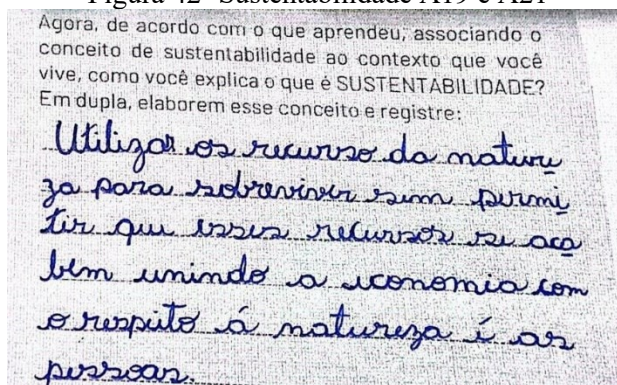 Figura 42- Sustentabilidade A19 e A21
Agora, de acordo com o que aprendeu, associando o
conceito de sustentabilidade ao contexto que você
vive, como você explica o que é SUSTENTABILIDADE?
Em dupla, elaborem esse conceito e registre:
Utilizar os recurso da nature
za para sobreviver sem permi
tir que esses recursos se aca
bem unindo a economia com
o respeito á natureza é as
pessoas.